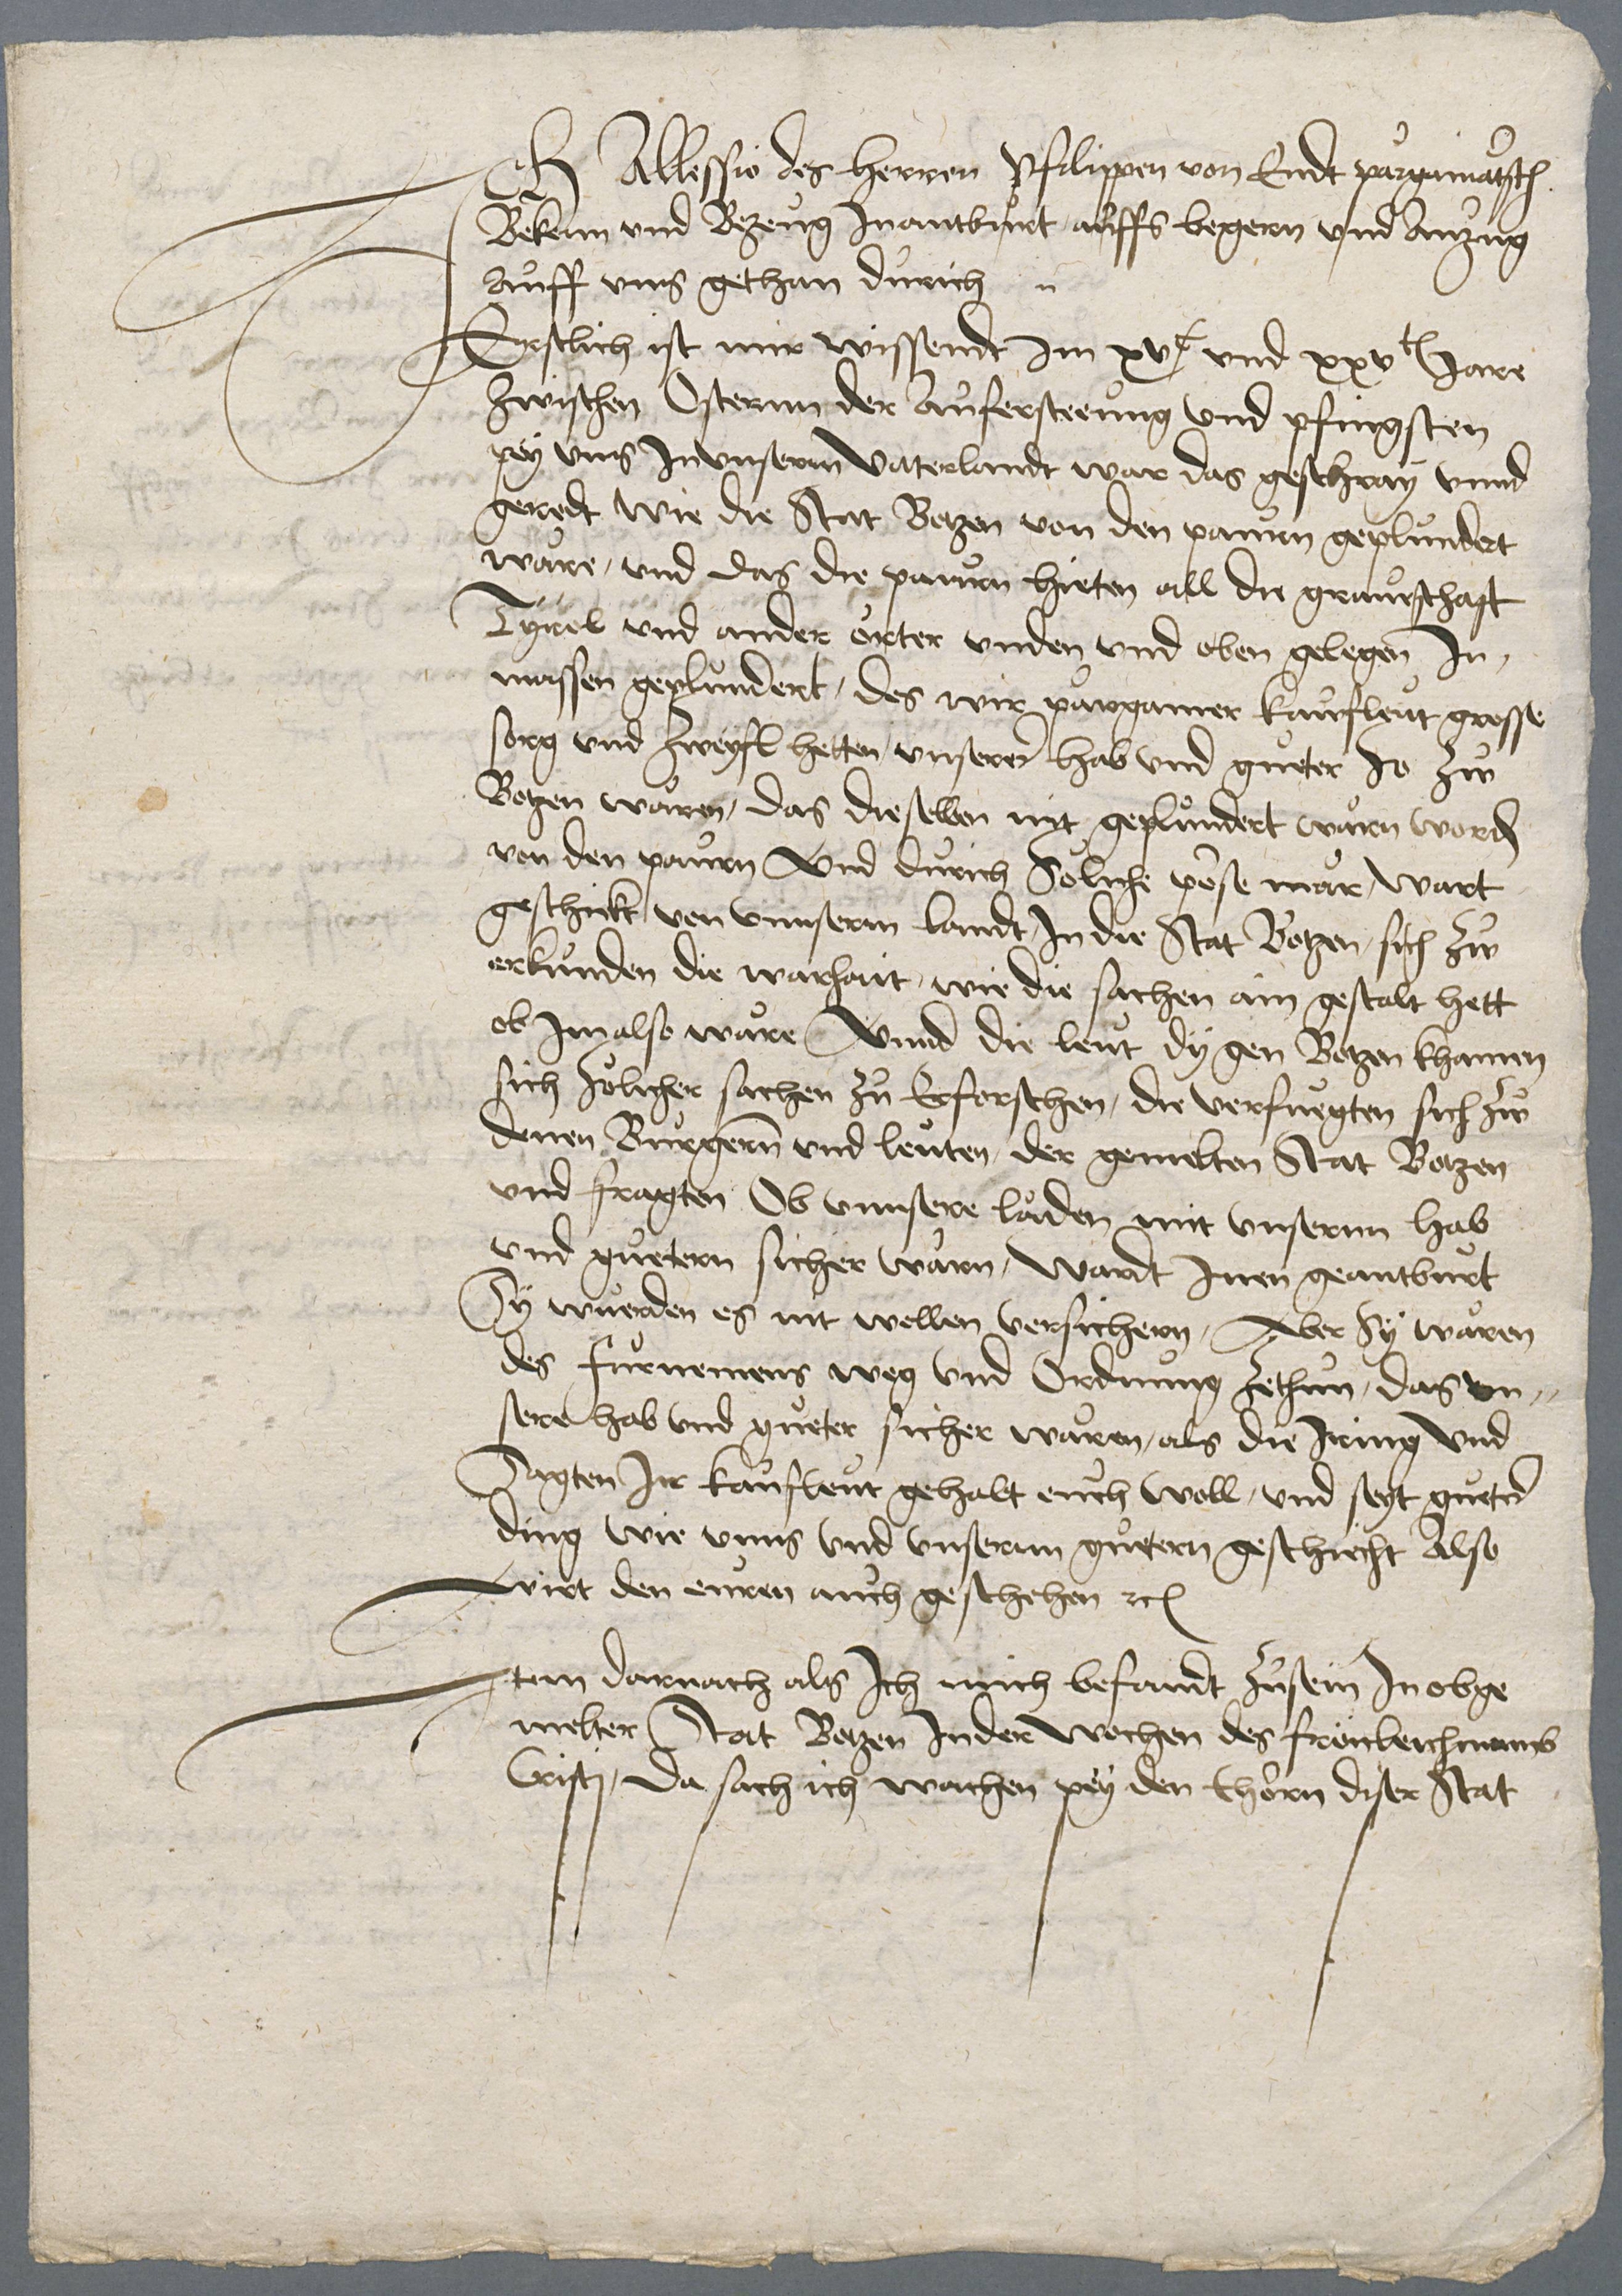 Ich Allessio des herren Philippen von Endt pärgamatsch
Bekenn und Bezeug Inantburt auffs begern und Anzug
Auff uns gethan durich
Erstlich ist mir wissendt Im xvc und xxvten Jare
Zwischen Osterinn der Aufersteeung und pfingsten
pey uns Inunserm Vaterlandt war das geschray unnd
geredt wie die Stat Botzen von den paurn geplundert
wäre, und das die paurn hieten all die grauschaft
Tyrol und ander örter unden und oben gelegen In,
massen geplundert, des wir pärgamer kaufleut grosse
sorg und Zweyfl hetten, unserer hab und gueter so Zw
Botzen wären, das dieselben nit geplundert wärn word
von den paurn Und durich Söliche pöse mär, wart
geschickt von unnserm landt, In die Stat Botzen, sich Zw
erkunden die warhait, wie die sachen ain gestalt hett
ob Im also wäre Unnd die leut dy gen Botzen khamen
sich sölicher sachen Zu Erforschen, die verfuegten sich Zw
denen Burgern und leuten, der gemelten Stat Botzen
und fragten Ob unnsere läden mit unserm hab
und guetern sicher wärn, wardt Inen geantburt
Sy wuerden es nit wellen versichern, Aber Sy wären
des fürnemens weg und Ordnung Zethun, das un,,
sere hab und gueter sicher wären, als die Iring Und
Sagten Ir kaufleut gehalt euch woll, und seyt gueter
ding wie unns und unserun guetern geschiecht Also
wirt den euren auch geschehen etc
Item darnach als Ich mich befandt Zusein In obge
melter Stat Botzen Inder Wochen des fronleichnams
Cristi, Da sach ich wachen pey den thörn diser Stat